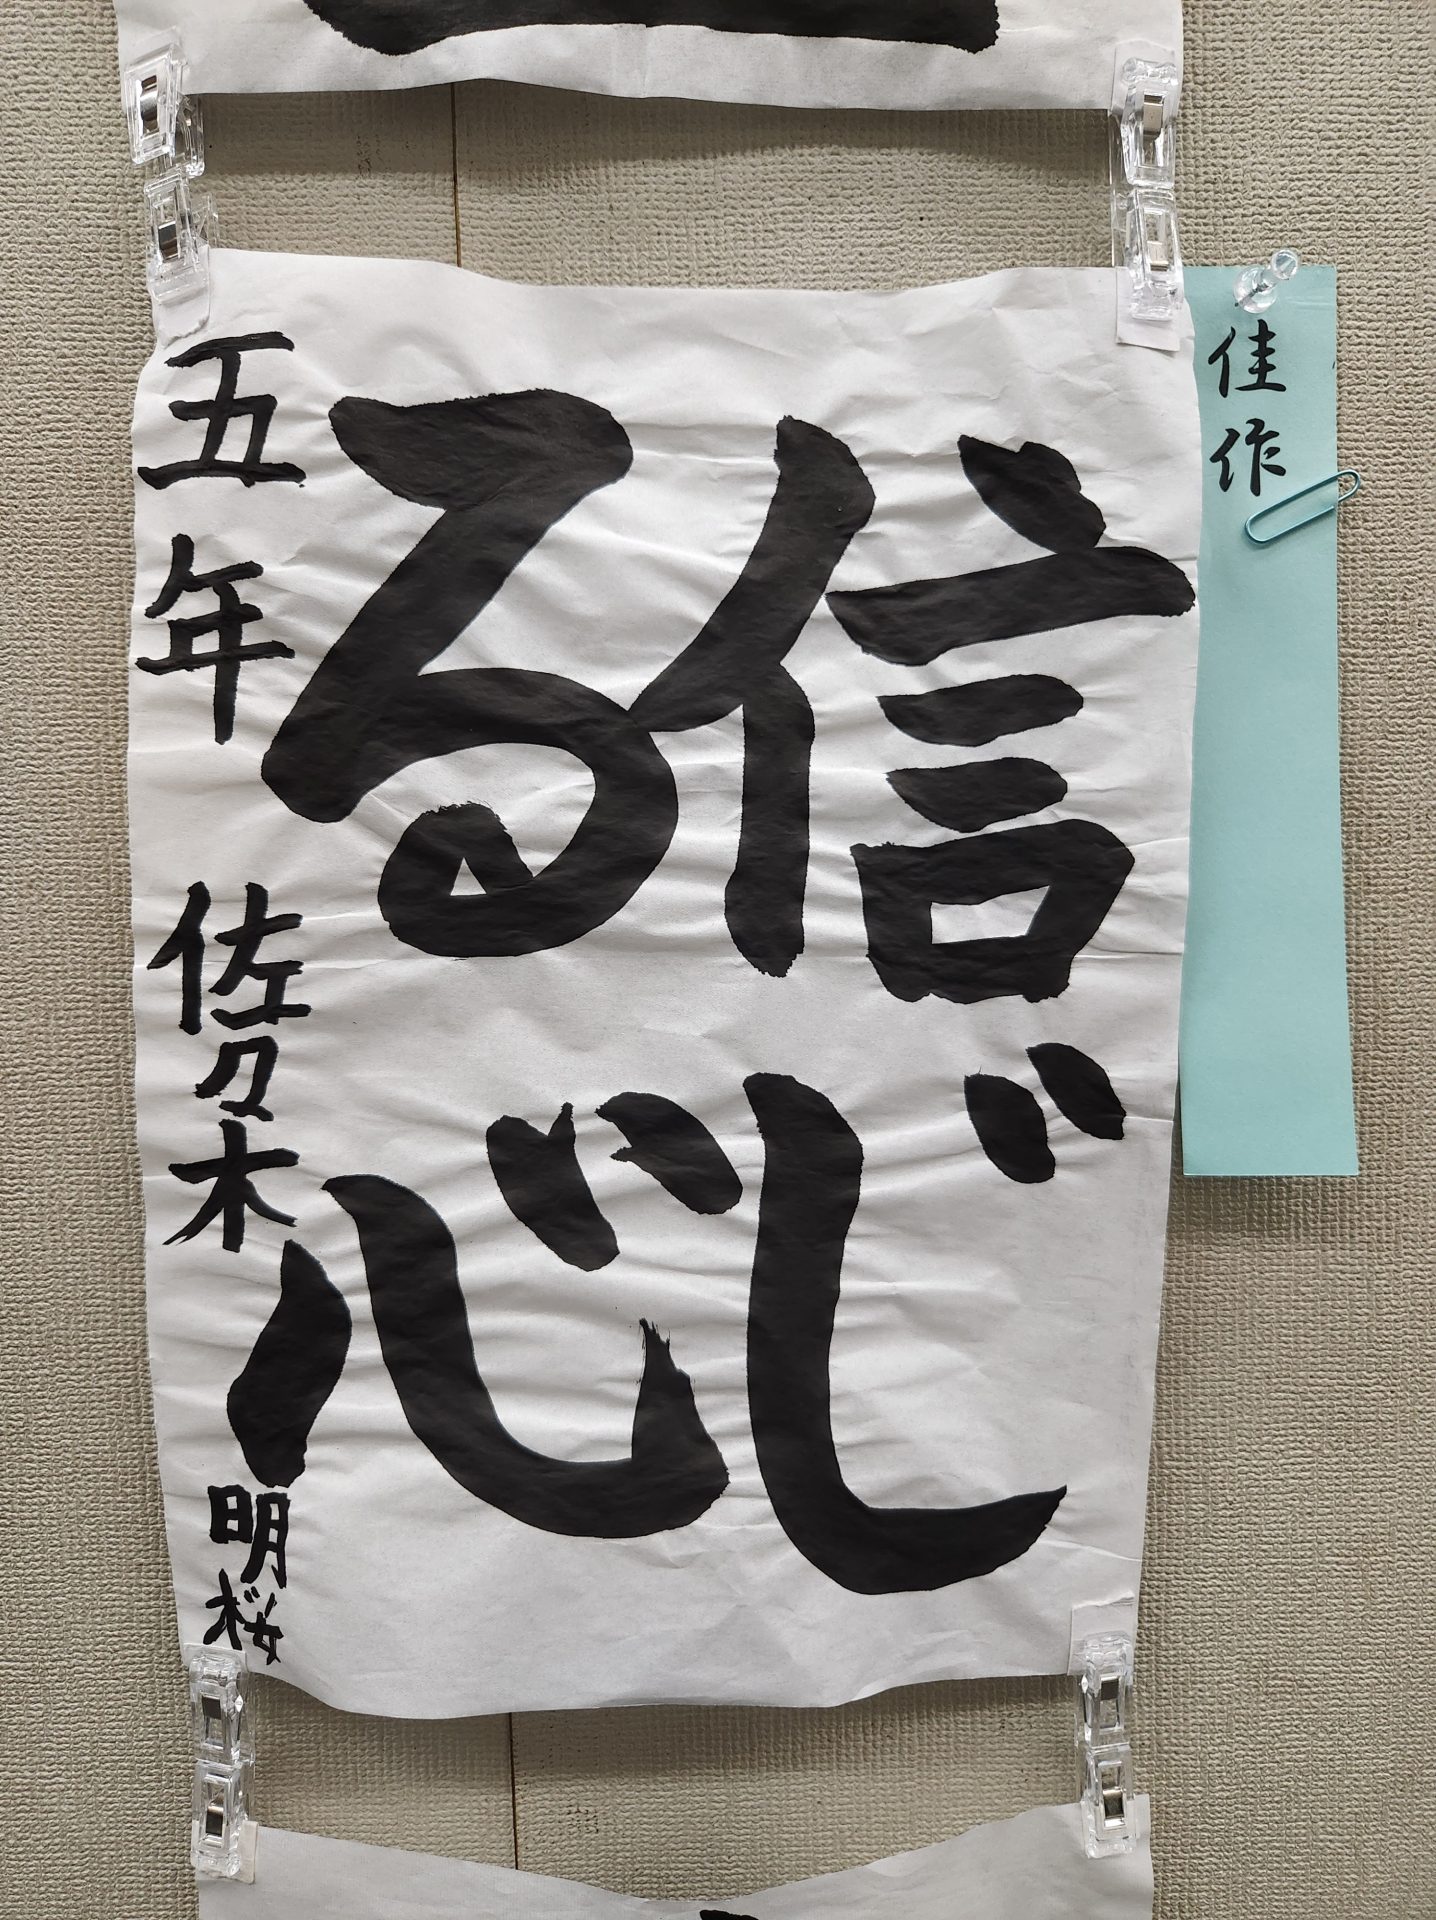 佳作
信じ
る心
五年 佐々木明桜